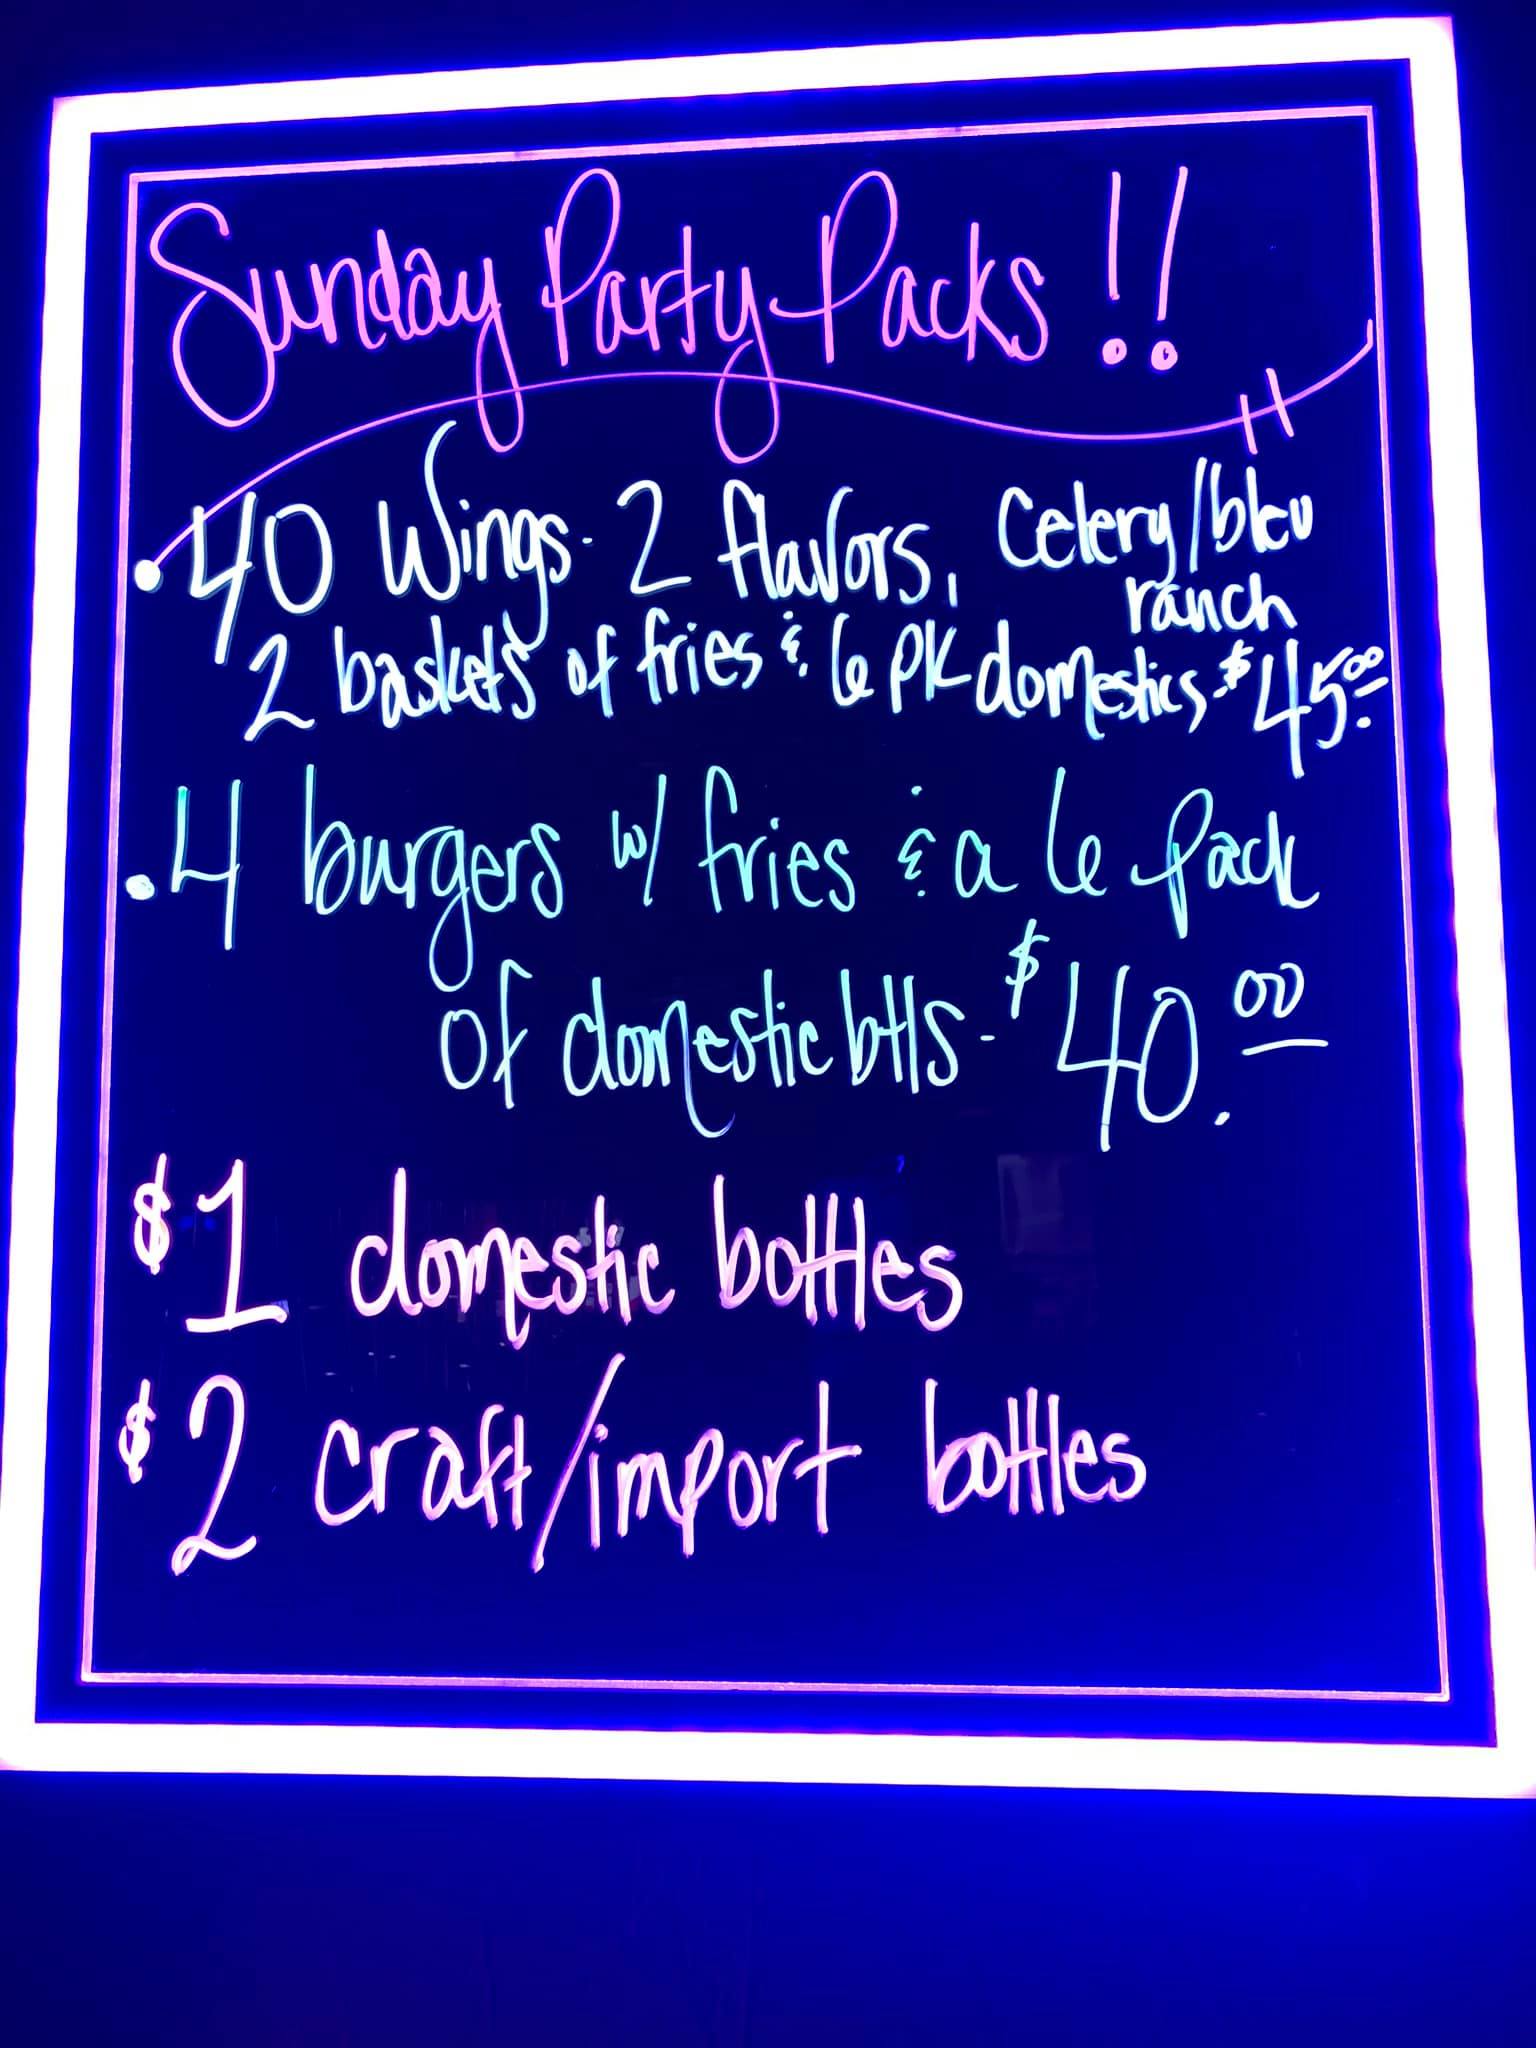 Sunday Party Packs!!
• 40 Wings - 2 flavors, Celery/bleu
ranch
2 baskets of fries & 6 pk domestics - $45.00
• 4 burgers w/ fries & a 6 pack
of domestic btls - $40.00
$1 domestic bottles
$2 craft/import bottles